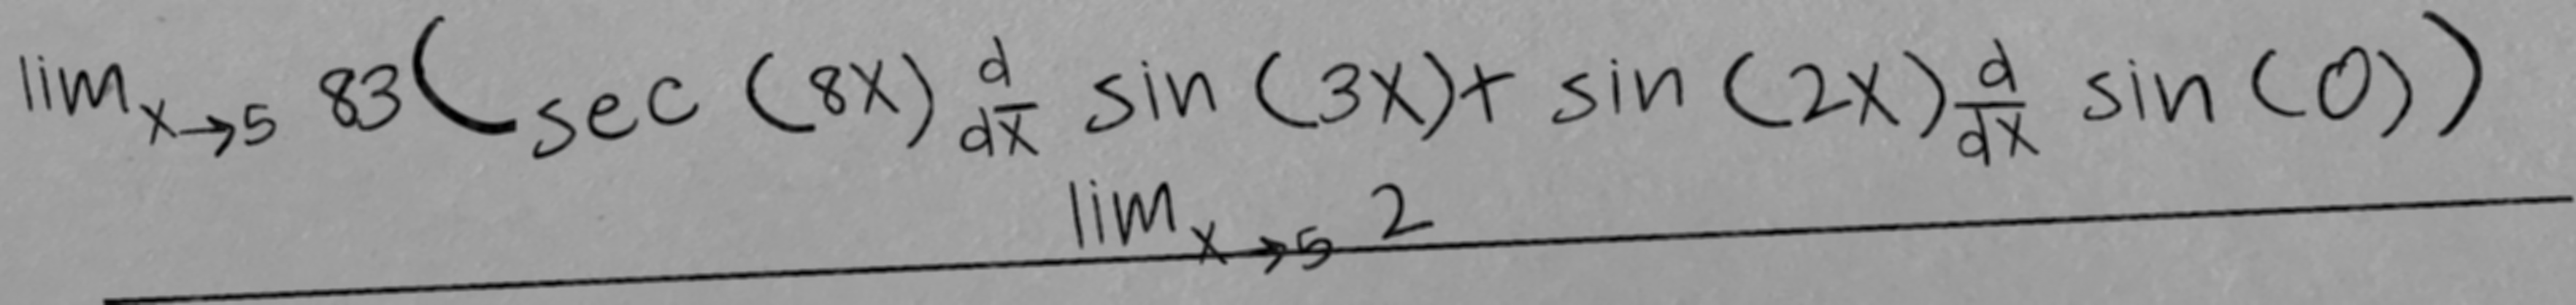 lim x→5 83(sec (8x) d/dx sin (3x)+ sin (2x) d/dx sin (0))
lim x→5 2